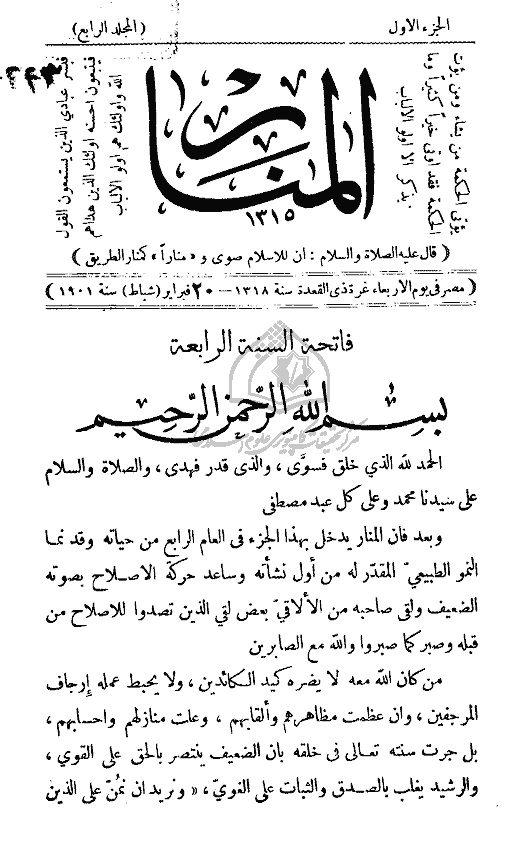 الجزء الاول
(المجلد الرابع)
يؤتى الحكمة من يشاء ومن يؤت
الحكمة فقد اوتى خيراً كثيراً وما
يذكر الا اولو الالباب
المنار
١٣١٥
فبشر عبادي الذين يستمعون القول
فيتبعون احسنه اولئك الذين هداهم
الله واولئك هم اولو الالباب
( قال عليه الصلاة والسلام : ان للاسلام صوى و « مناراً » كمنار الطريق )
( مصر فى يوم الاربعاء غرة ذى القعدة سنة ١٣١٨ — ٢٠ فبراير (شباط) سنة ١٩٠١ )
فاتحة السنة الرابعة
بسم الله الرحمن الرحيم
الحمد لله الذي خلق فسوَّى ، والذى قدر فهدى ، والصلاة والسلام
على سيدنا محمد وعلى كل عبد مصطفى
وبعد فان المنار يدخل بهذا الجزء فى العام الرابع من حياته وقد نمـا
النمو الطبيعيّ المقدّر له من أول نشأته وساعد حركة الاصـلاح بصوته
الضعيف ولقى صاحبه من الألاقيّ بعض لقي الذين تصدوا للاصلاح من
قبله وصبر كما صبروا والله مع الصابرين
من كان الله معه لا يضره كيد الكـائدين ، ولا يحبط عمله إرجاف
المرجفين ، وان عظمت مظاهرهم وألقابهم ، وعلت منازلهم واحسابهم ،
بل جرت سنته تعالى فى خلقه بان الضعيف ينتصر بالحق على القوي ،
والرشيد يغلب بالصدق والثبات على الغويّ ، « ونريد ان نمُنّ على الذين